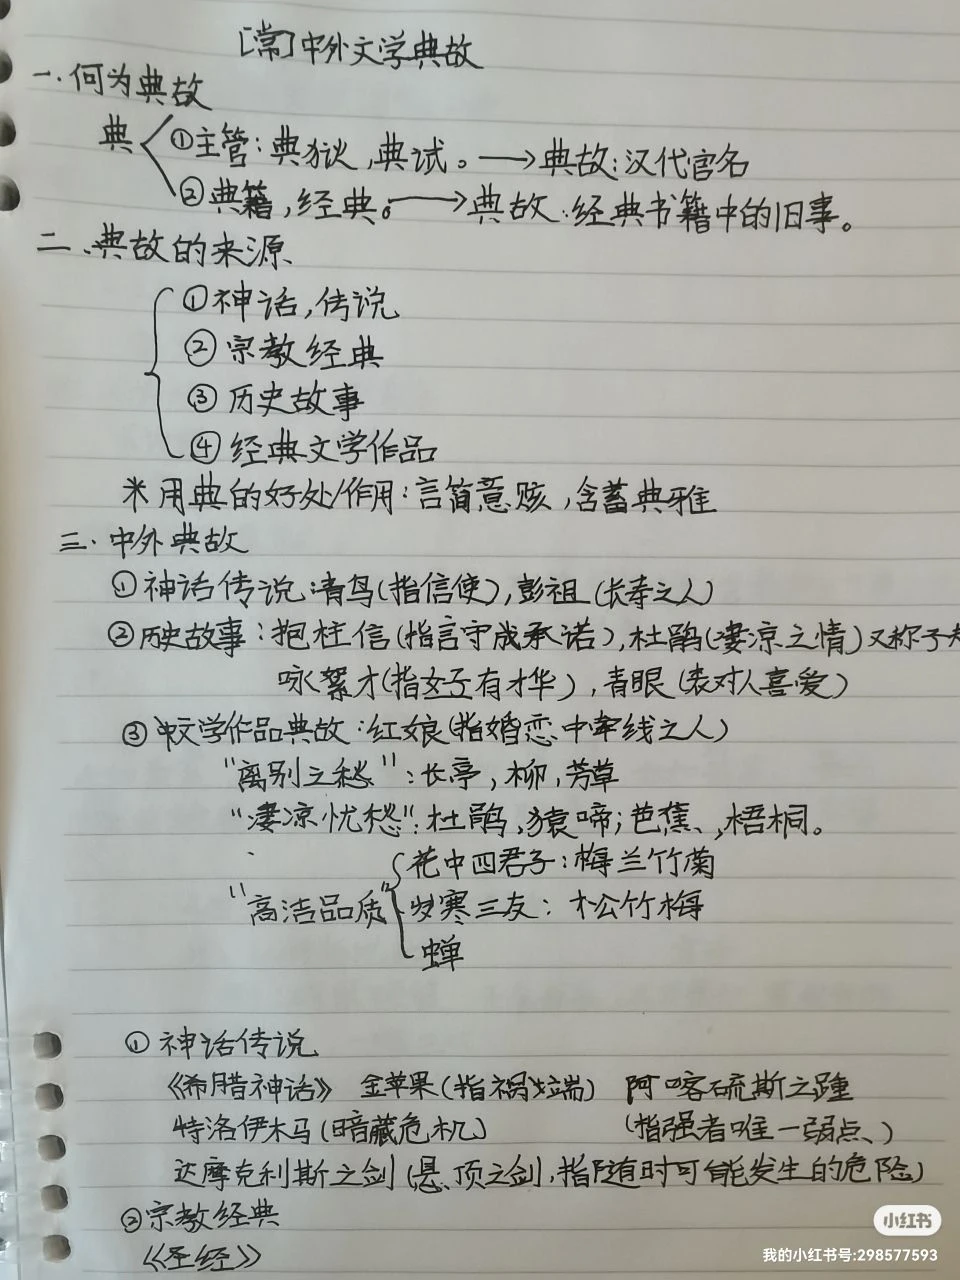 [常]中外文学典故
一.何为典故
典 ①主管:典狱,典试。→典故:汉代官名
②典籍,经典。→典故:经典书籍中的旧事。
二、典故的来源
①神话,传说
②宗教经典
③历史故事
④经典文学作品
米用典的好处/作用:言简意赅,含蓄典雅
三.中外典故
①神话传说:青鸟(指信使),彭祖(长寿之人)
②历史故事:抱柱信(指言守成承诺),杜鹃(凄凉之情)又称子
咏絮才(指女子有才华),青眼(表对人喜爱)
③文学作品典故:红娘(指婚恋中牵线之人)
"离别之愁":长亭,柳,芳草
"凄凉忧愁":杜鹃,猿啼;芭蕉、,梧桐。
花中四君子:梅兰竹菊
"高洁品质" 岁寒三友:松竹梅
蝉
①神话传说
《希腊神话》 金苹果(指祸端) 阿喀硫斯之踵
特洛伊木马(暗藏危机) (指强者唯一弱点、)
达摩克利斯之剑(悬顶之剑,指随时可能发生的危险)
②宗教经典
《圣经》
小红书
我的小红书号:298577593